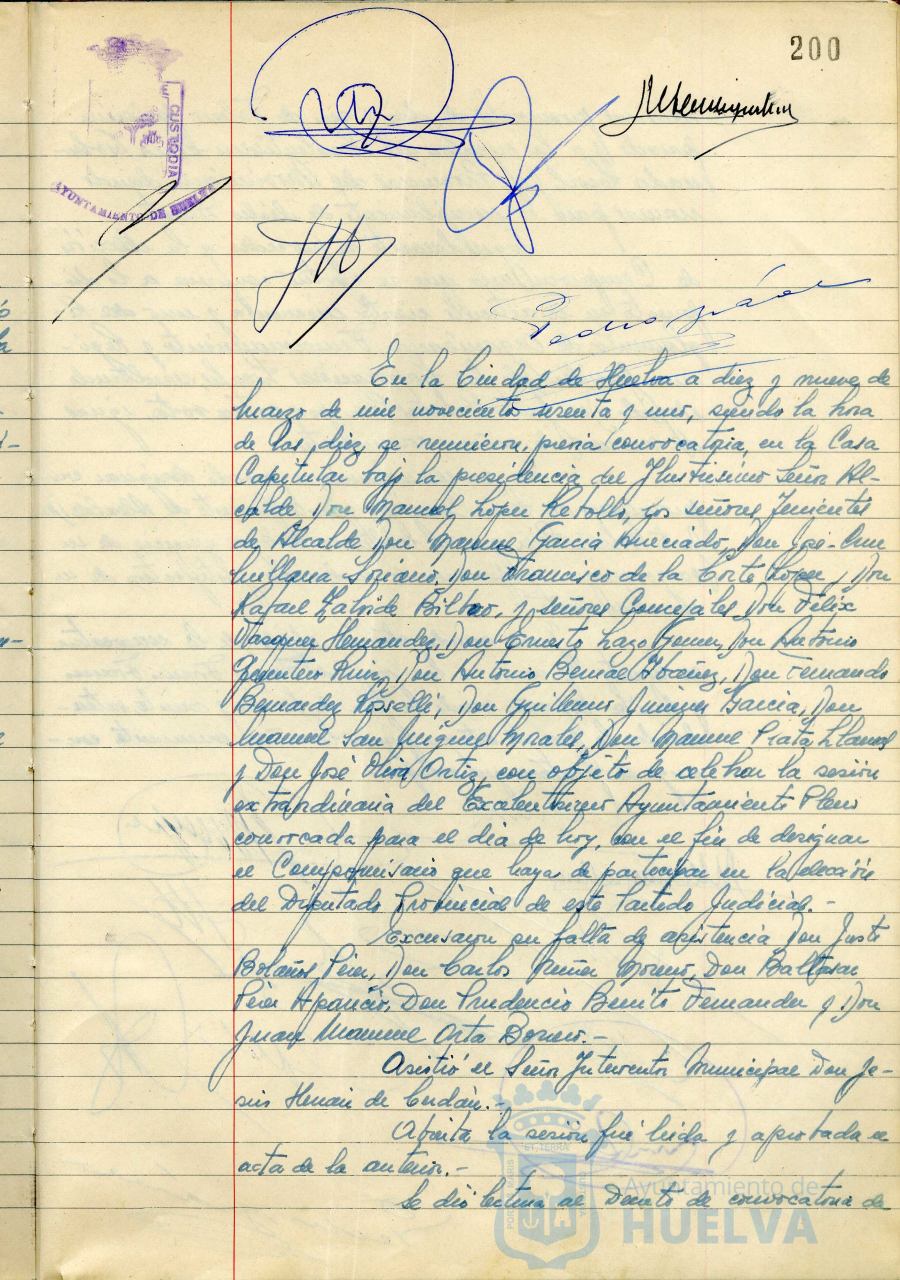 200
CUSTODIA
AYUNTAMIENTO DE HUELVA
Pedro
En la Ciudad de Huelva a diez y nueve de
marzo de mil novecientos sesenta y uno, siendo la hora
de las diez, se reunieron, previa convocatoria, en la Casa
Capitular bajo la presidencia del Ilustrísimo Señor Al-
calde Don Manuel López Rebollo, los señores Tenientes
de Alcalde Don Manuel Garcia Anreciado, Don José Cru
millana Soriano, Don Francisco de la Corte López y Don
Rafael Zalvide Bilbao, y señores Concejales Don Félix
Vasquez Hernandez, Don Ernesto Lazo Gomez, Don Antonio
Quintero Ruiz, Don Antonio Bernal Ibañez, Don Fernando
Bernardez Rosselli, Don Guillermo Jimenez Garcia, Don
Manuel San Miguel Morales, Don Manuel Prata Llamas
y Don José Oliva Ortiz, con objeto de celebrar la sesión
extraordinaria del Excelentísimo Ayuntamiento Pleno
convocada para el dia de hoy, con el fin de designar
el Compromisario que haya de participar en la elección
del Diputado Provincial de este Partido Judicial.-
Excusaron su falta de asistencia Don Justo
Bolaños Pérez, Don Carlos Nuñez Moreno, Don Baltasar
Pérez Aparicio, Don Prudencio Benito Fernandez y Don
Juan Manuel Orta Borrero.-
Asistió el Señor Interventor Municipal Don Je-
sús Hernai de Cerdán.-
Abierta la sesión fué leida y aprobada el
acta de la anterior.-
Se dió lectura al Decreto de convocatoria de
Ayuntamiento de
HUELVA